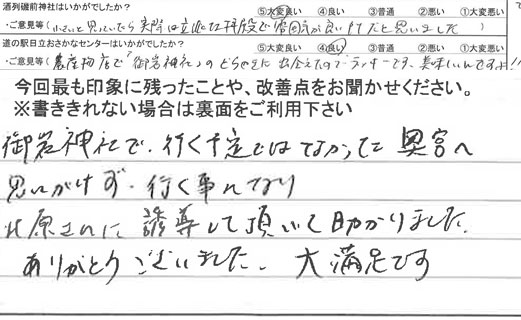 酒列磯前神社はいかがでしたか? ⑤大変良い ④良い ③普通 ②悪い ①大変悪い
・ご意見等(小さいと思っていたら実際は立派な 段で雰囲気が良い所だと思いました)
道の駅日立おさかなセンターはいかがでしたか? ⑤大変良い ④良い ③普通 ②悪い ①大変悪い
・ご意見等(農産物店で「御岩神社」のどらやきに出会えたのでラッキーです、美味しいんですよ!!
今回最も印象に残ったことや、改善点をお聞かせください。
※書ききれない場合は裏面をご利用下さい
御岩神社で、行く予定ではなかった奥宮へ
思いがけず、行く事になり
原さんに誘導して頂いて助かりました。
ありがとうございました。大満足です